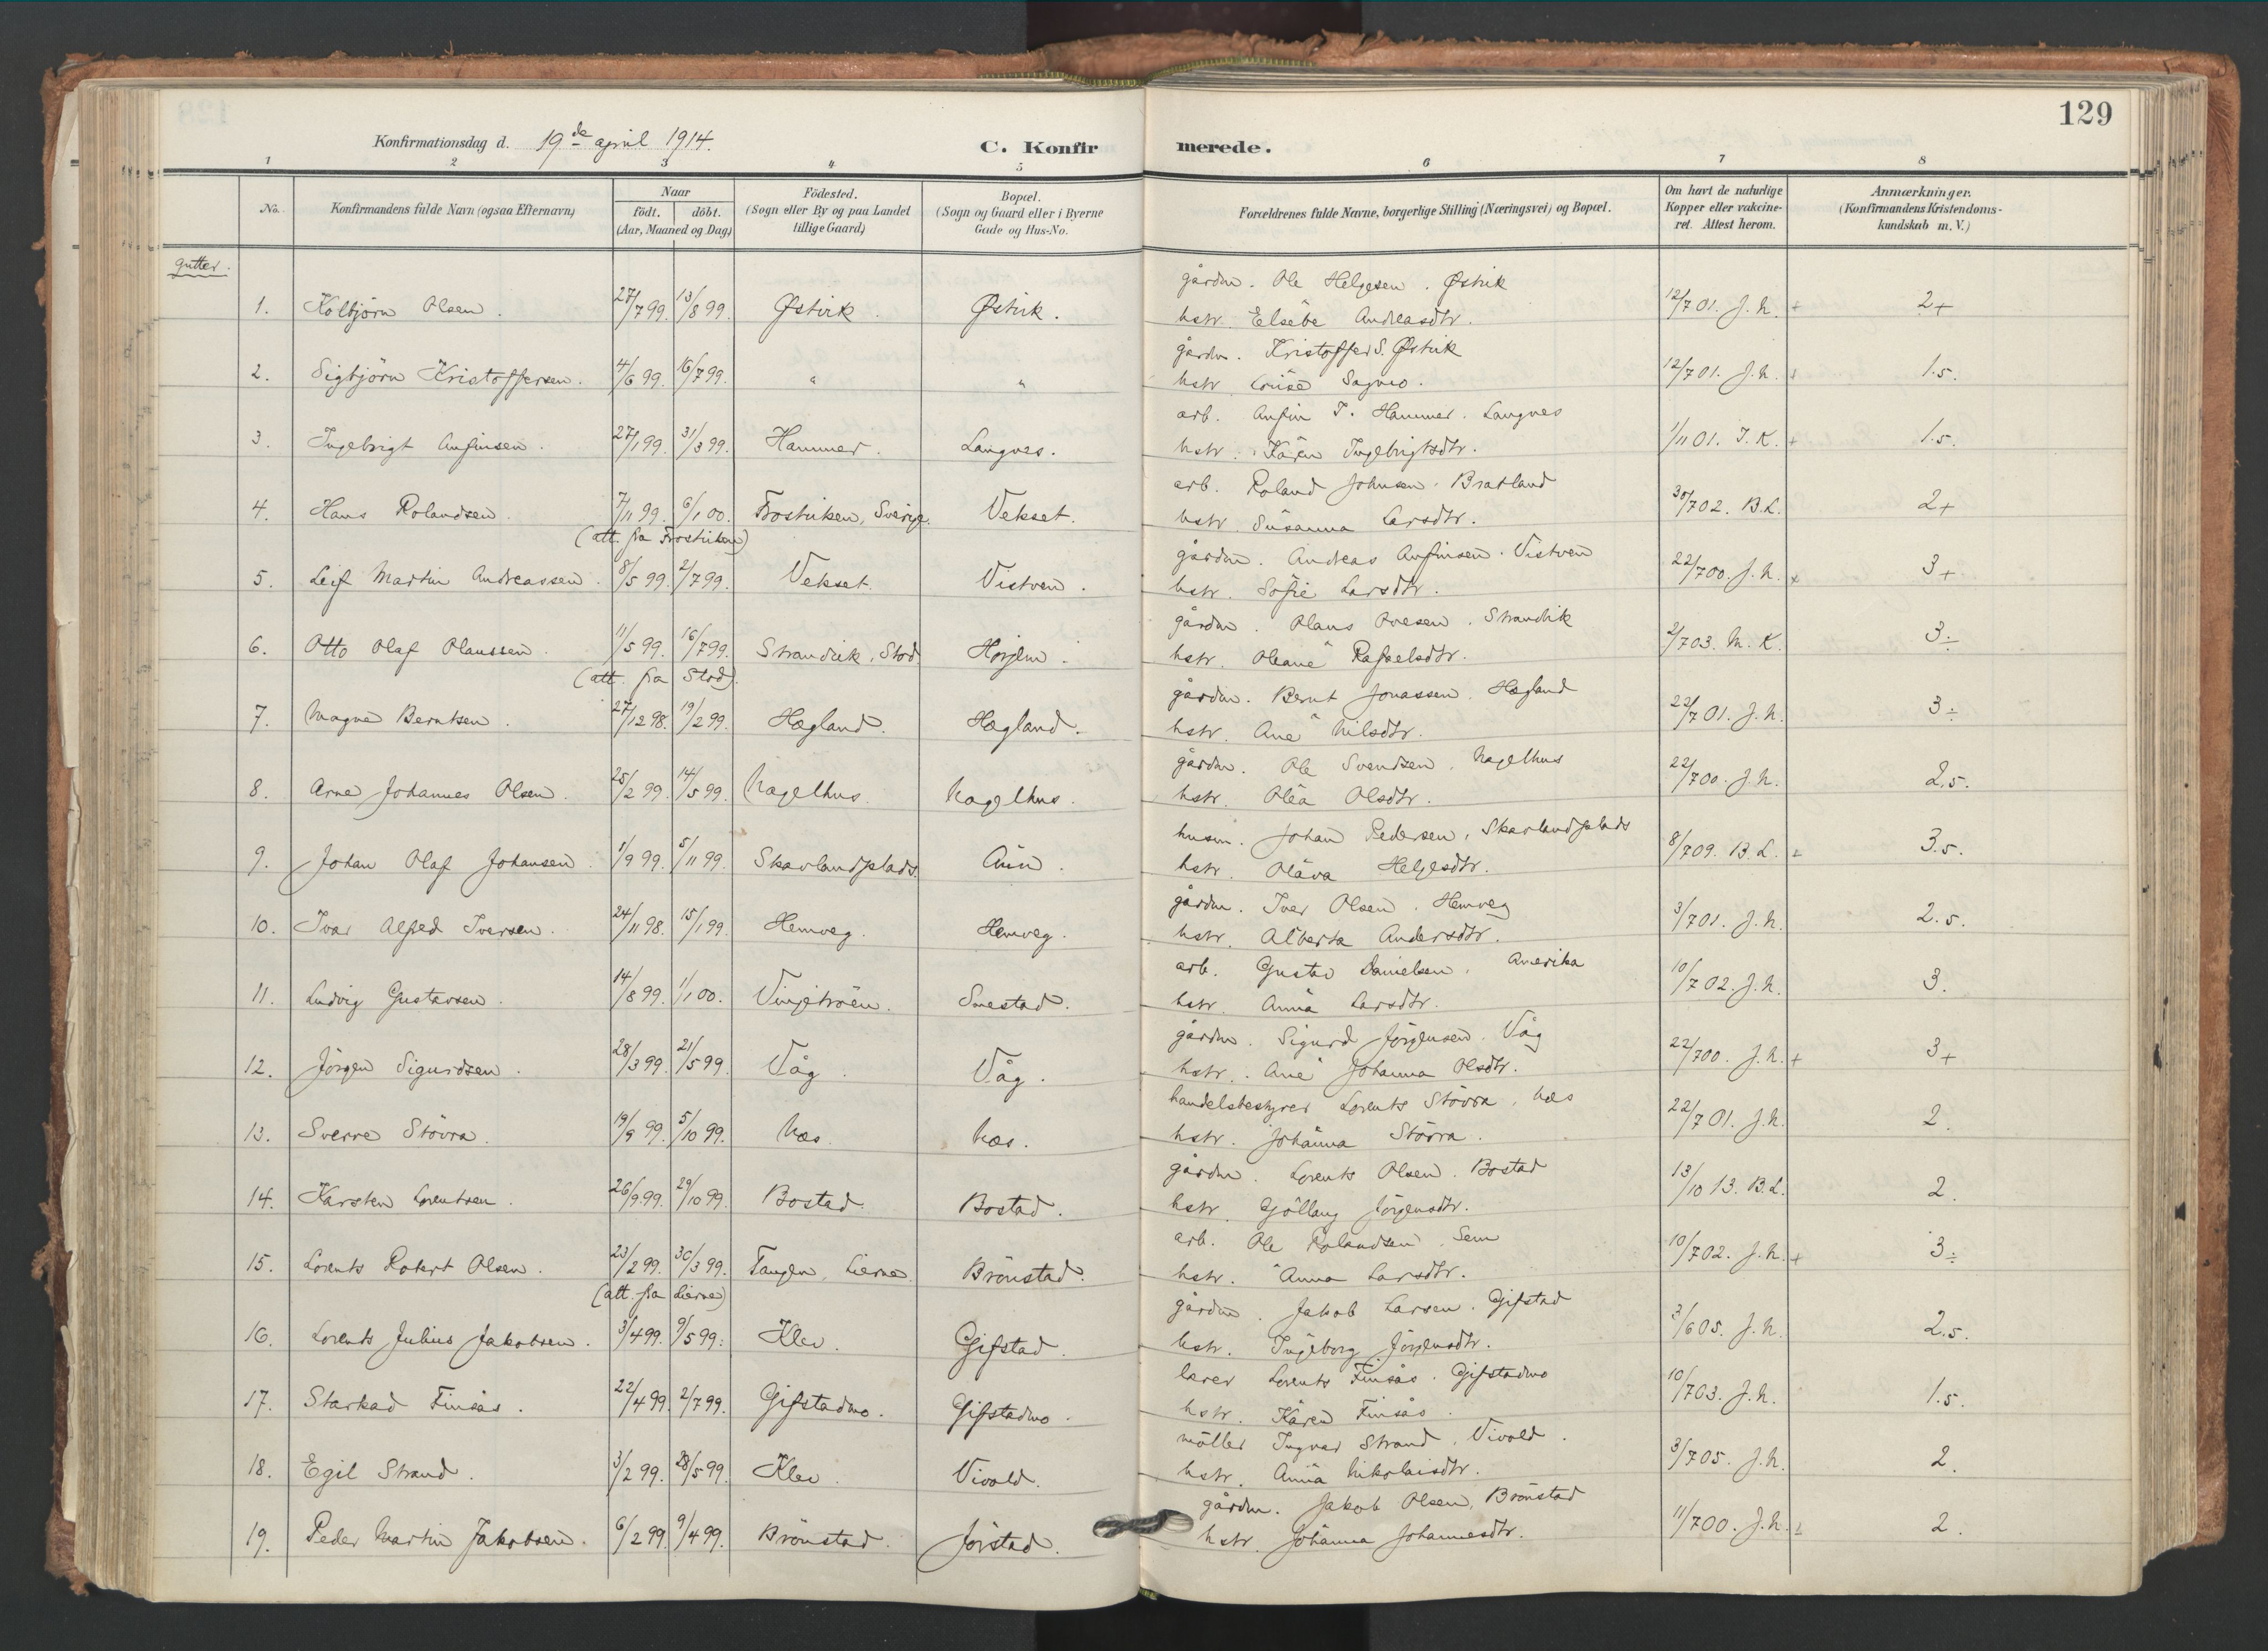 129
Konfirmationsdag d. 19de april 1914.
C. Konfirmerede.
1 2 3 4 5 6 7 8
No. | Konfirmandens fulde Navn (ogsaa Efternavn) | Naar födt. döbt. (Aar, Maaned og Dag) | Födested. (Sogn eller By og paa Landet tillige Gaard) | Bopæl. (Sogn og Gaard eller i Byerne Gade og Hus-No. | Forældrenes fulde Navne, borgerlige Stilling (Næringsvei) og Bopæl. | Om havt de naturlige Kopper eller vakcineret. Attest herom. | Anmærkninger. (Konfirmandens Kristendomskundskab m. V.)
gutter.
gårdm. Ole Helgesen. Østvik
1. Kolbjörn Olsen. 27/7 99. 13/8 99. Østvik. Østvik. hstr. Elsebe Andreasdtr. 12/7 01. J. N. + 2+
gårdm. Kristoffer S. Østvik
2. Sigbjörn Kristoffersen. 4/6 99. 16/7 99. " " hstr. Louise 12/7 01. J. N. + 1.5.
arb. Anfin J. Hammer. Langnes
3. Ingebrigt Anfinsen. 27/1 99. 31/3 99. Hammer. Langnes. hstr. Karen Ingebrigtsdtr. 1/11 01. J. K. + 1.5.
arb. Roland Johnsen. Bratland
4. Hans Rolandsen. 7/11 99. 6/1 00. Frostviken, Sverige. Vekset. hstr. Susanna Larsdtr. 30/7 02. B. L. 2+
(att. fra Frostviken)
gårdm. Andreas Anfinsen. Vistven
5. Leif Martin Andreassen. 8/5 99. 2/7 99. Vekset. Vistven. hstr. Sofie Larsdtr. 22/7 00. J. N. + 3+
gårdm. Olaus Ovesen. Strandvik
6. Otto Olaf Olaussen. 11/5 99. 16/7 99. Strandvik, Stod Horjem. hstr. Oleane Rafaelsdtr. 2/7 03. M. K. 3÷
(att. fra Stod)
gårdm. Bernt Jonassen. Hægland
7. Magne Berntsen. 27/12 98. 19/2 99. Hægland. Hægland. hstr. Ane Nilsdtr. 22/7 01. J. N. 3÷
gårdm. Ole Svendsen. Nagelhus
8. Arne Johannes Olsen. 25/2 99. 14/5 99. Nagelhus. Nagelhus. hstr. Olea Olsdtr. 22/7 00. J. N. 2.5.
husm. Johan Pedersen, Skarlandsplads
9. Johan Olaf Johansen. 1/9 99. 5/11 99. Skarlandsplads. Aun. hstr. Olava Helgesdtr. 8/7 09. B. L. + 3.5.
gårdm. Iver Olsen. Hemveg
10. Ivar Alfred Iversen. 24/11 98. 15/1 99. Hemveg. Hemveg. hstr. Alberta Andersdtr. 3/7 01. J. N. 2.5.
arb. Gustav Danielsen, Amerika
11. Ludvig Gustavsen. 14/8 99. 1/1 00. Vingetroen. Smestad. hstr. Anna Larsdtr. 10/7 02. J. N. 3.
gårdm. Sigurd Jörgensen. Våg
12. Jörgen Sigurdsen. 28/3 99. 21/5 99. Våg. Våg. hstr. Ane Johanna Olsdtr. 22/7 00. J. N. + 3+
handelsbestyrer Lorents Stövra, Næs
13. Sverre Stövra. 19/9 99. 5/10 99. Næs. Næs. hstr. Johanna Stövra. 22/7 01. J. N. 2.
gårdm. Lorents Olsen. Bostad
14. Karsten Lorentsen. 26/9 99. 29/10 99. Bostad. Bostad. hstr. Gjöllaug Jörgensdtr. 13/10 13. B. L. 2.
arb. Ole Rolandsen. Sem
15. Lorents Robert Olsen. 23/2 99. 30/3 99. Tangen, Lierne. Brönstad. hstr. Anna Larsdtr. 10/7 02. J. N. + 3÷
(att. fra Lierne)
gårdm. Jakob Larsen. Gifstad
16. Lorents Julius Jakobsen. 3/4 99. 9/5 99. Klev. Gifstad. hstr. Ingeborg Jörgensdtr. 3/6 05. J. N. 2.5.
lærer Lorents Finsås. Gifstadmo
17. Starkad Finsås. 22/4 99. 2/7 99. Gifstadmo. Gifstadmo. hstr. Karen Finsås. 10/7 03. J. N. 1.5.
möller Ingvar Strand, Vivold.
18. Egil Strand. 3/2 99. 28/5 99. Klev. Vivold. hstr. Anna Nikolaisdtr. 3/7 05. J. N. 2.
gårdm. Jakob Olsen, Brönstad
19. Peder Martin Jakobsen. 6/2 99. 9/4 99. Brönstad. Jörstad. hstr. Johanna Johannesdtr. 11/7 00. J. N. + 2.